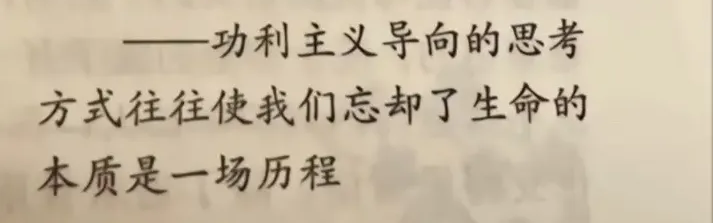 ——功利主义导向的思考
方式往往使我们忘却了生命的
本质是一场历程